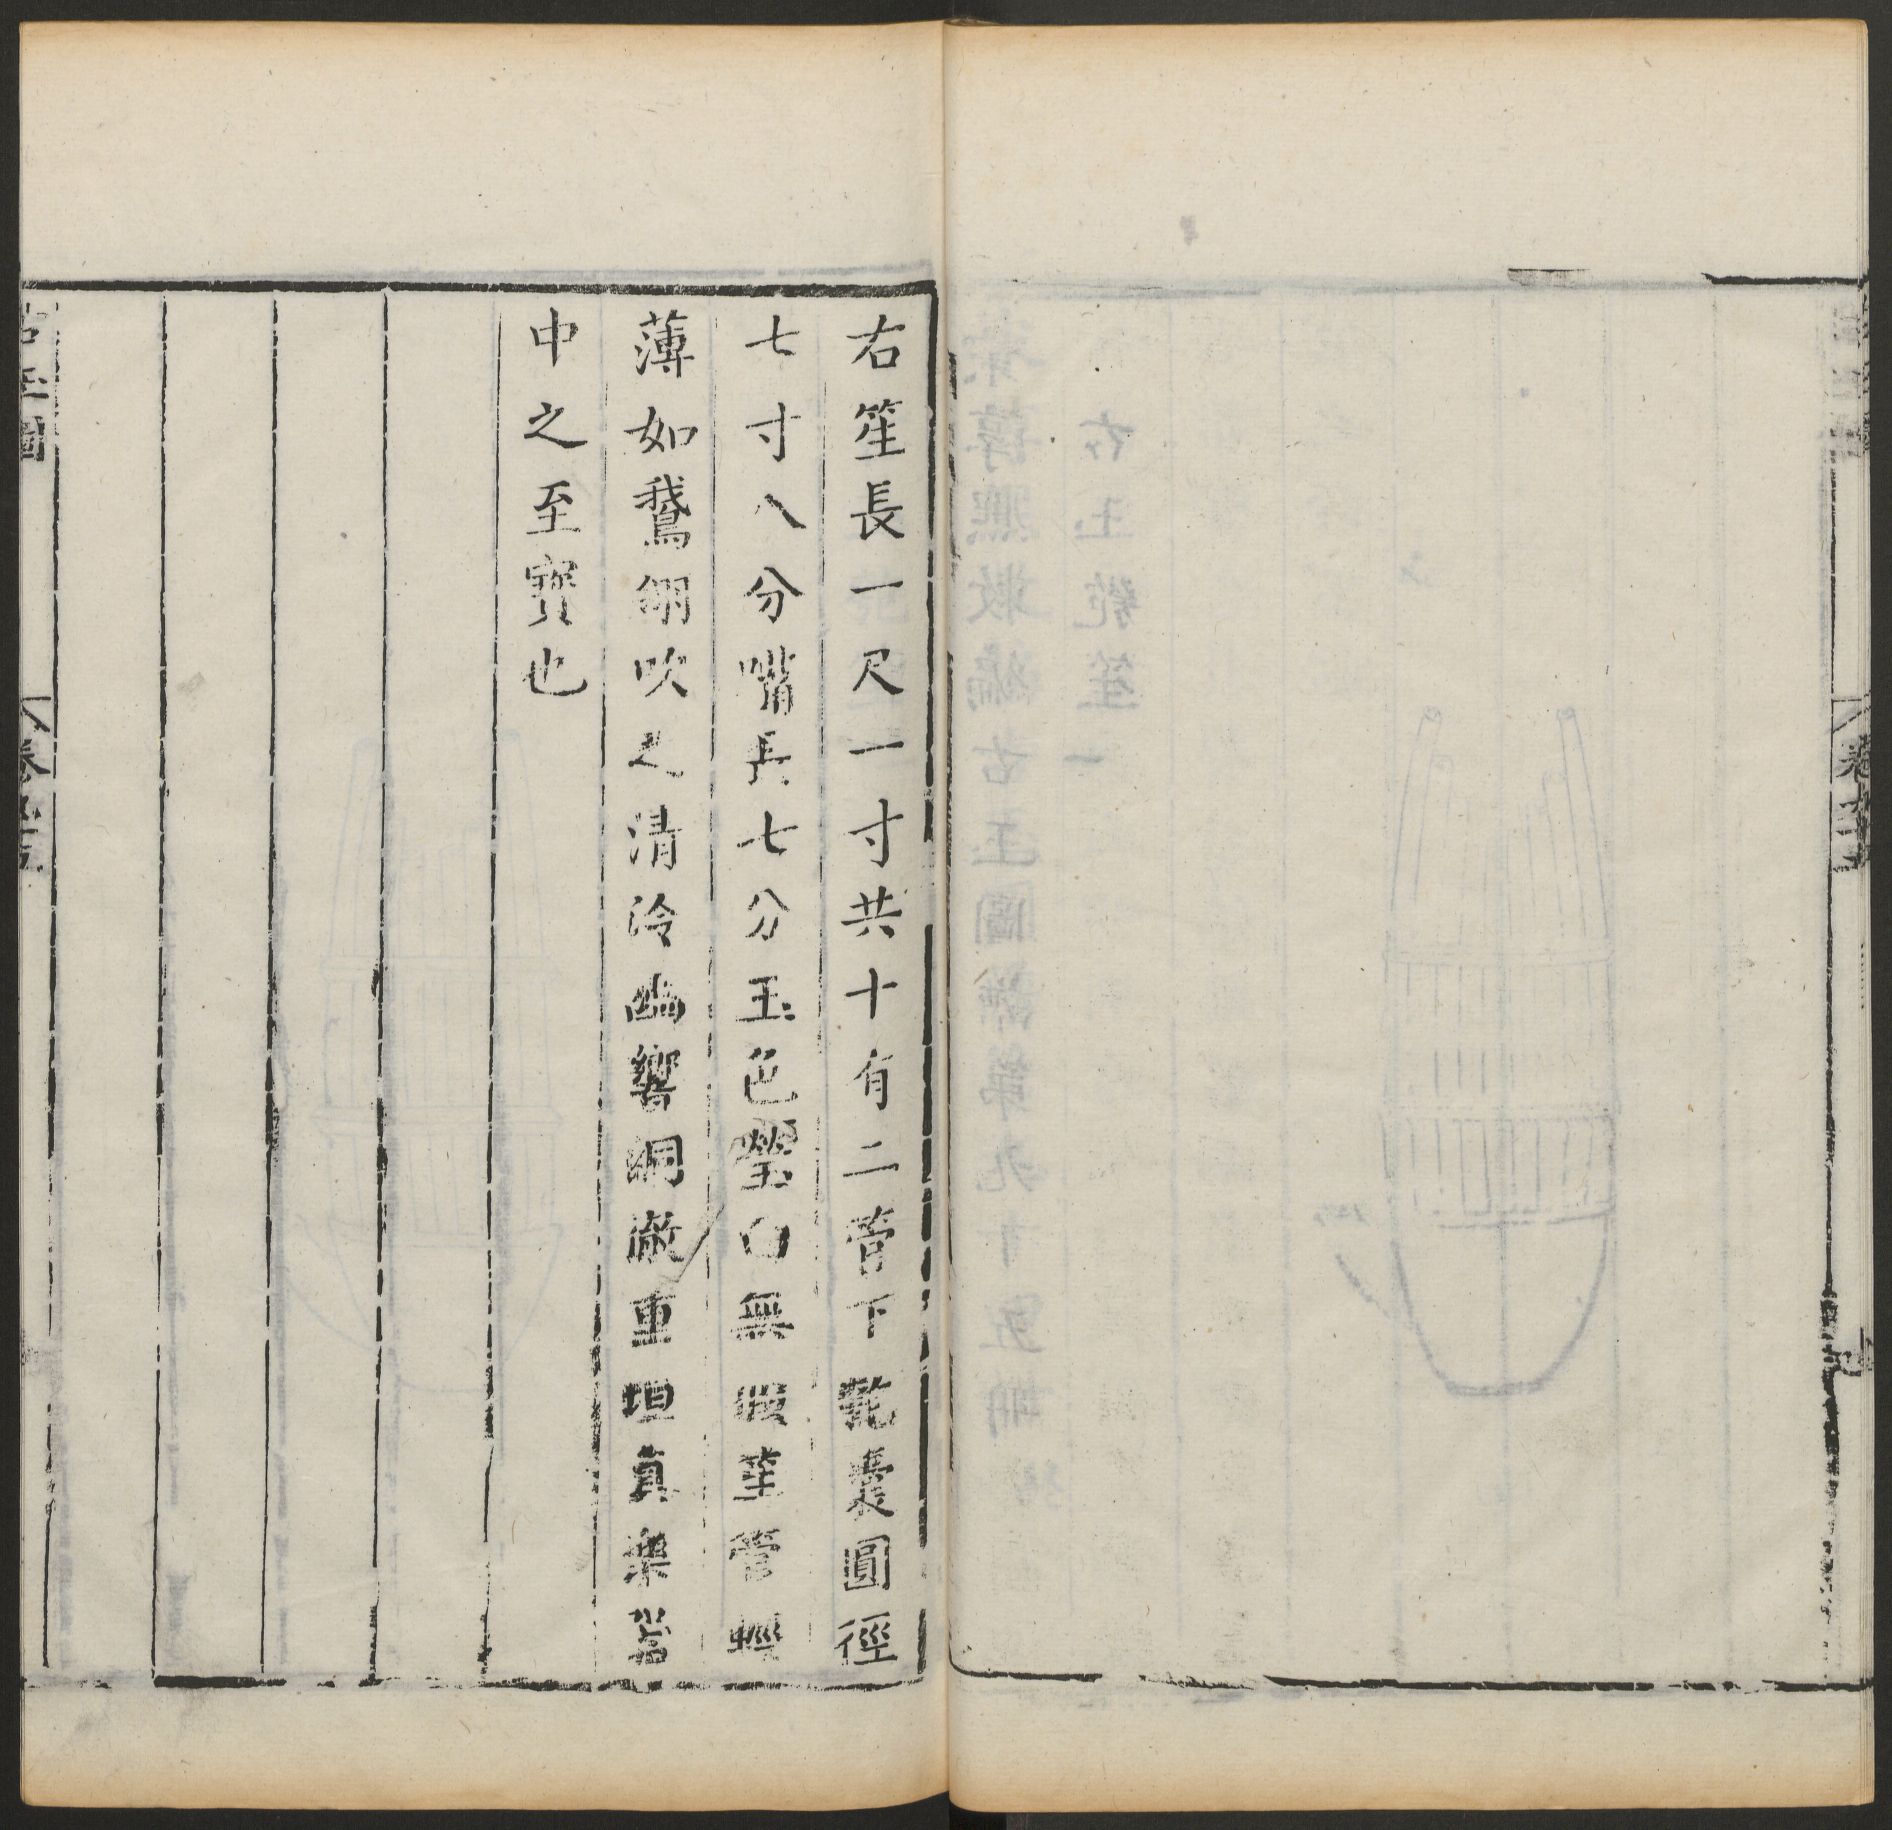 右笙長一尺一寸共十有二管下匏囊圓徑
七寸八分嘴長七分玉色瑩白無瑕葉管輕
薄如鵞翎吹之清泠幽響洞澈重垣真樂器
中之至寶也